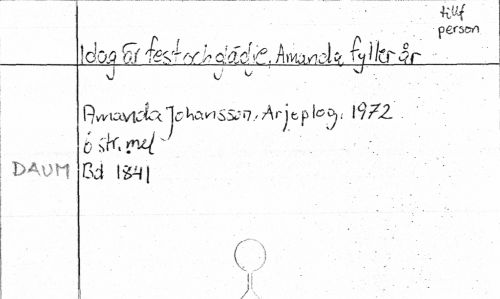 tillf
person
Idag är fest och glädje, Amanda fyller år
Amanda Johansson, Arjeplog, 1972
6 str. mel
DAUM Bd 1841